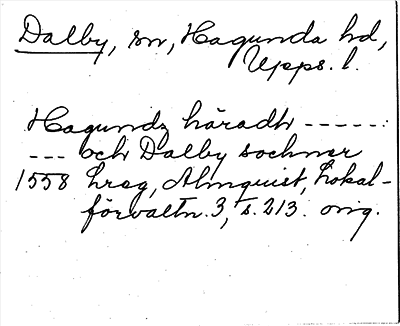 Dalby, sn, Hagunda hd,
Upps. l.
Hagundz häradh -----:
--- och Dalby sochner
1558 hreg, Almquist, Lokal-
förvaltn. 3, s. 213. orig.